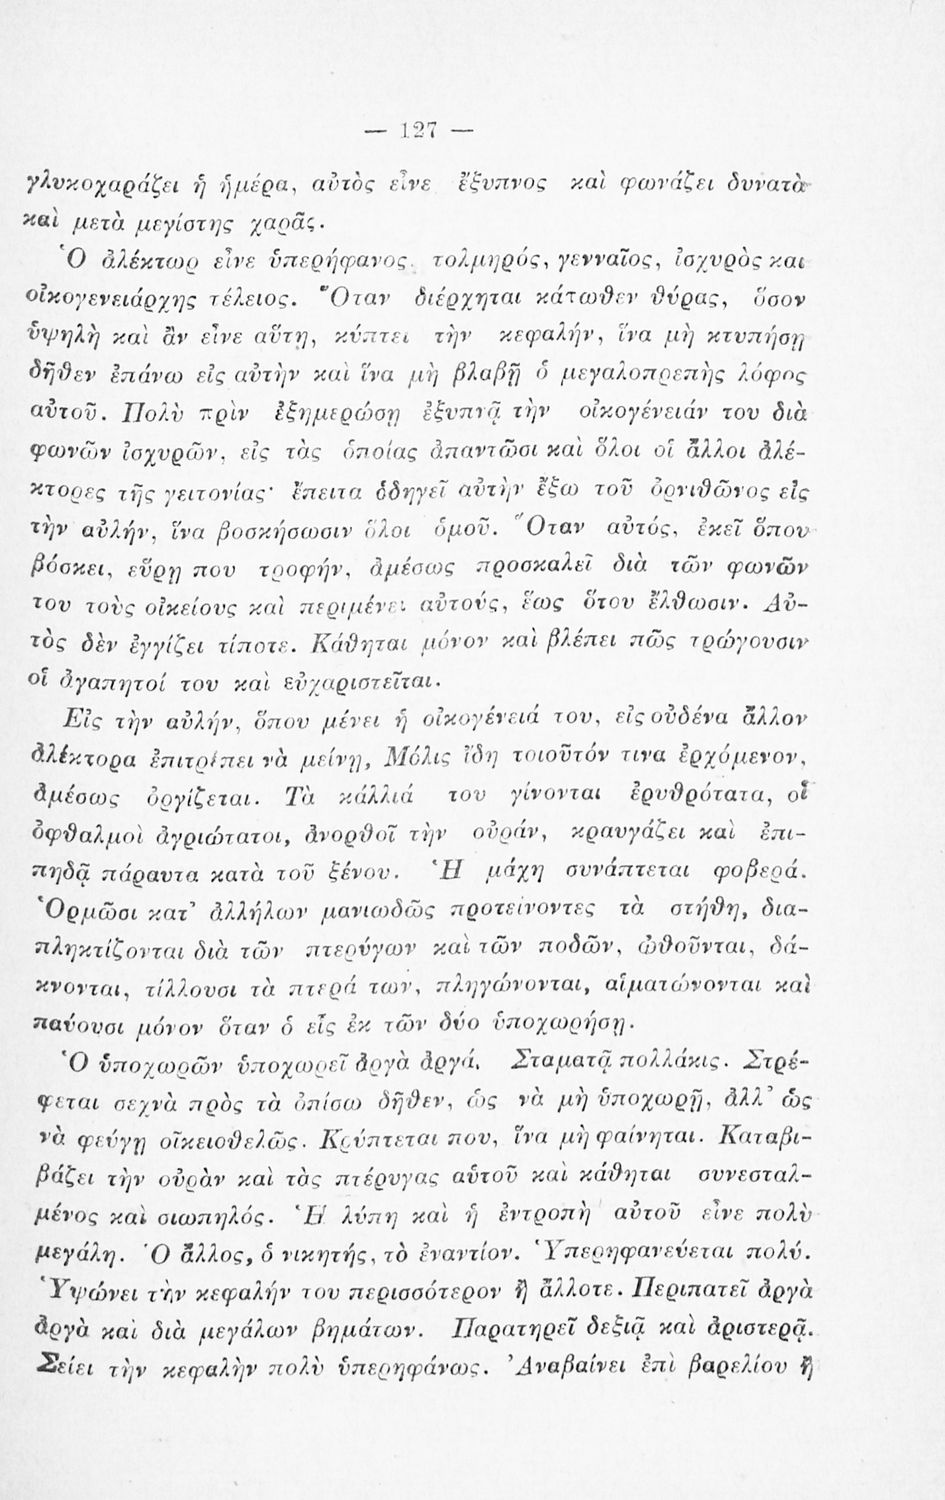 — 127 —
γλυκοχαράζει ἡ ἡμέρα, αὐτὸς εἶνε ἔξυπνος καὶ φωνάζει δυνατὰ
καὶ μετὰ μεγίστης χαρᾶς.
Ὁ ἀλέκτωρ εἶνε ὑπερήφανος, τολμηρός, γενναῖος, ἰσχυρὸς και
οἰκογενειάρχης τέλειος. Ὅταν διέρχηται κάτωθεν θύρας, ὅσον
ὑψηλὴ καὶ ἂν εἶνε αὕτη, κύπτει τὴν κεφαλήν, ἵνα μὴ κτυπήσῃ
δῆθεν ἐπάνω εἰς αὐτὴν καὶ ἵνα μὴ βλαβῇ ὁ μεγαλοπρεπὴς λόφος
αὐτοῦ. Πολὺ πρὶν ἐξημερώσῃ ἐξυπνᾷ τὴν οἰκογένειάν του διὰ
φωνῶν ἰσχυρῶν, εἰς τὰς ὁποίας ἀπαντῶσι καὶ ὅλοι οἱ ἄλλοι ἀλέ-
κτορες τῆς γειτονίας· ἔπειτα ὁδηγεῖ αὐτὴν ἔξω τοῦ ὀρνιθῶνος εἰς
τὴν αὐλήν, ἵνα βοσκήσωσιν ὅλοι ὁμοῦ. Ὅταν αὐτός, ἐκεῖ ὅπου
βόσκει, εὕρῃ που τροφήν, ἀμέσως προσκαλεῖ διὰ τῶν φωνῶν
του τοὺς οἰκείους καὶ περιμένει αὐτούς, ἕως ὅτου ἔλθωσιν. Αὐ-
τὸς δὲν ἐγγίζει τίποτε. Κάθηται μόνον καὶ βλέπει πῶς τρώγουσιν
οἱ ἀγαπητοί του καὶ εὐχαριστεῖται.
Εἰς τὴν αὐλήν, ὅπου μένει ἡ οἰκογένειά του, εἰς οὐδένα ἄλλον
ἀλέκτορα ἐπιτρέπει νὰ μείνῃ, Μόλις ἴδῃ τοιοῦτόν τινα ἐρχόμενον,
ἀμέσως ὀργίζεται. Τὰ κάλλιά του γίνονται ἐρυθρότατα, οἱ
ὀφθαλμοὶ ἀγριώτατοι, ἀνορθοῖ τὴν οὐράν, κραυγάζει καὶ ἐπι-
πηδᾷ πάραυτα κατὰ τοῦ ξένου. Ἡ μάχη συνάπτεται φοβερά.
Ὁρμῶσι κατ' ἀλλήλων μανιωδῶς προτείνοντες τὰ στήθη, δια-
πληκτίζονται διὰ τῶν πτερύγων καὶ τῶν ποδῶν, ὠθοῦνται, δά-
κνονται, τίλλουσι τὰ πτερά των, πληγώνονται, αἱματώνονται καὶ
παύουσι μόνον ὅταν ὁ εἷς ἐκ τῶν δύο ὑποχωρήσῃ.
Ὁ ὑποχωρῶν ὑποχωρεῖ ἀργὰ ἀργά. Σταματᾷ πολλάκις. Στρέ-
φεται συχνὰ πρὸς τὰ ὀπίσω δῆθεν, ὡς νὰ μὴ ὑποχωρῇ, ἀλλ' ὡς
νὰ φεύγῃ οἰκειοθελῶς. Κρύπτεται που, ἵνα μὴ φαίνηται. Καταβι-
βάζει τὴν οὐρὰν καὶ τὰς πτέρυγας αὐτοῦ καὶ κάθηται συνεσταλ-
μένος καὶ σιωπηλός. Ἡ λύπη καὶ ἡ ἐντροπὴ αὐτοῦ εἶνε πολὺ
μεγάλη. Ὁ ἄλλος, ὁ νικητής, τὸ ἐναντίον. Ὑπερηφανεύεται πολύ.
Ὑψώνει τὴν κεφαλήν του περισσότερον ἢ ἄλλοτε. Περιπατεῖ ἀργὰ
ἀργὰ καὶ διὰ μεγάλων βημάτων. Παρατηρεῖ δεξιᾷ καὶ ἀριστερᾷ.
Σείει τὴν κεφαλὴν πολὺ ὑπερηφάνως. Ἀναβαίνει ἐπὶ βαρελίου ἢ